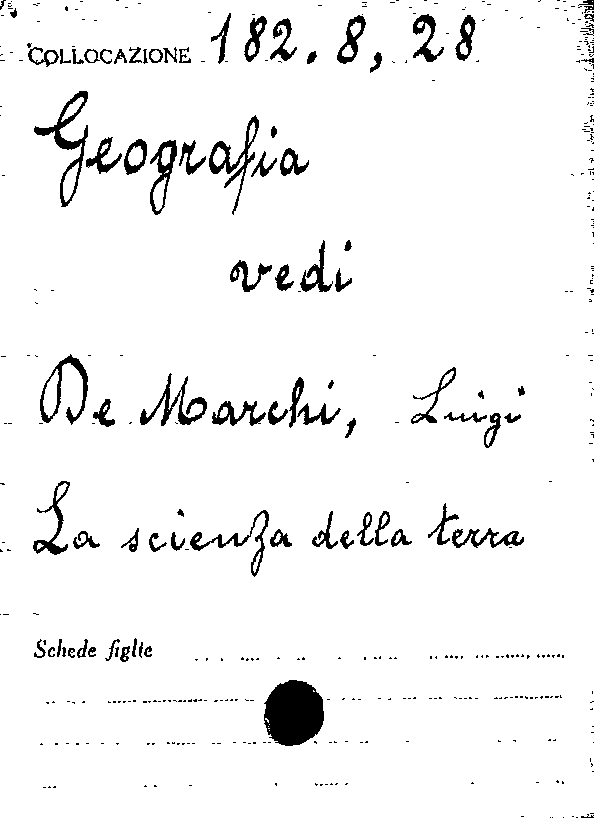 COLLOCAZIONE 182.8,28
Geografia
vedi
De Marchi, Luigi
La scienza della terra
Schede figlie